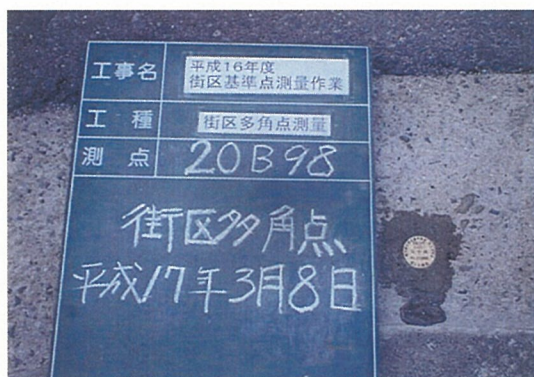 工事名
平成16年度
街区基準点測量作業
工種
街区多角点測量
測点
20B98
街区多角点
平成17年3月8日